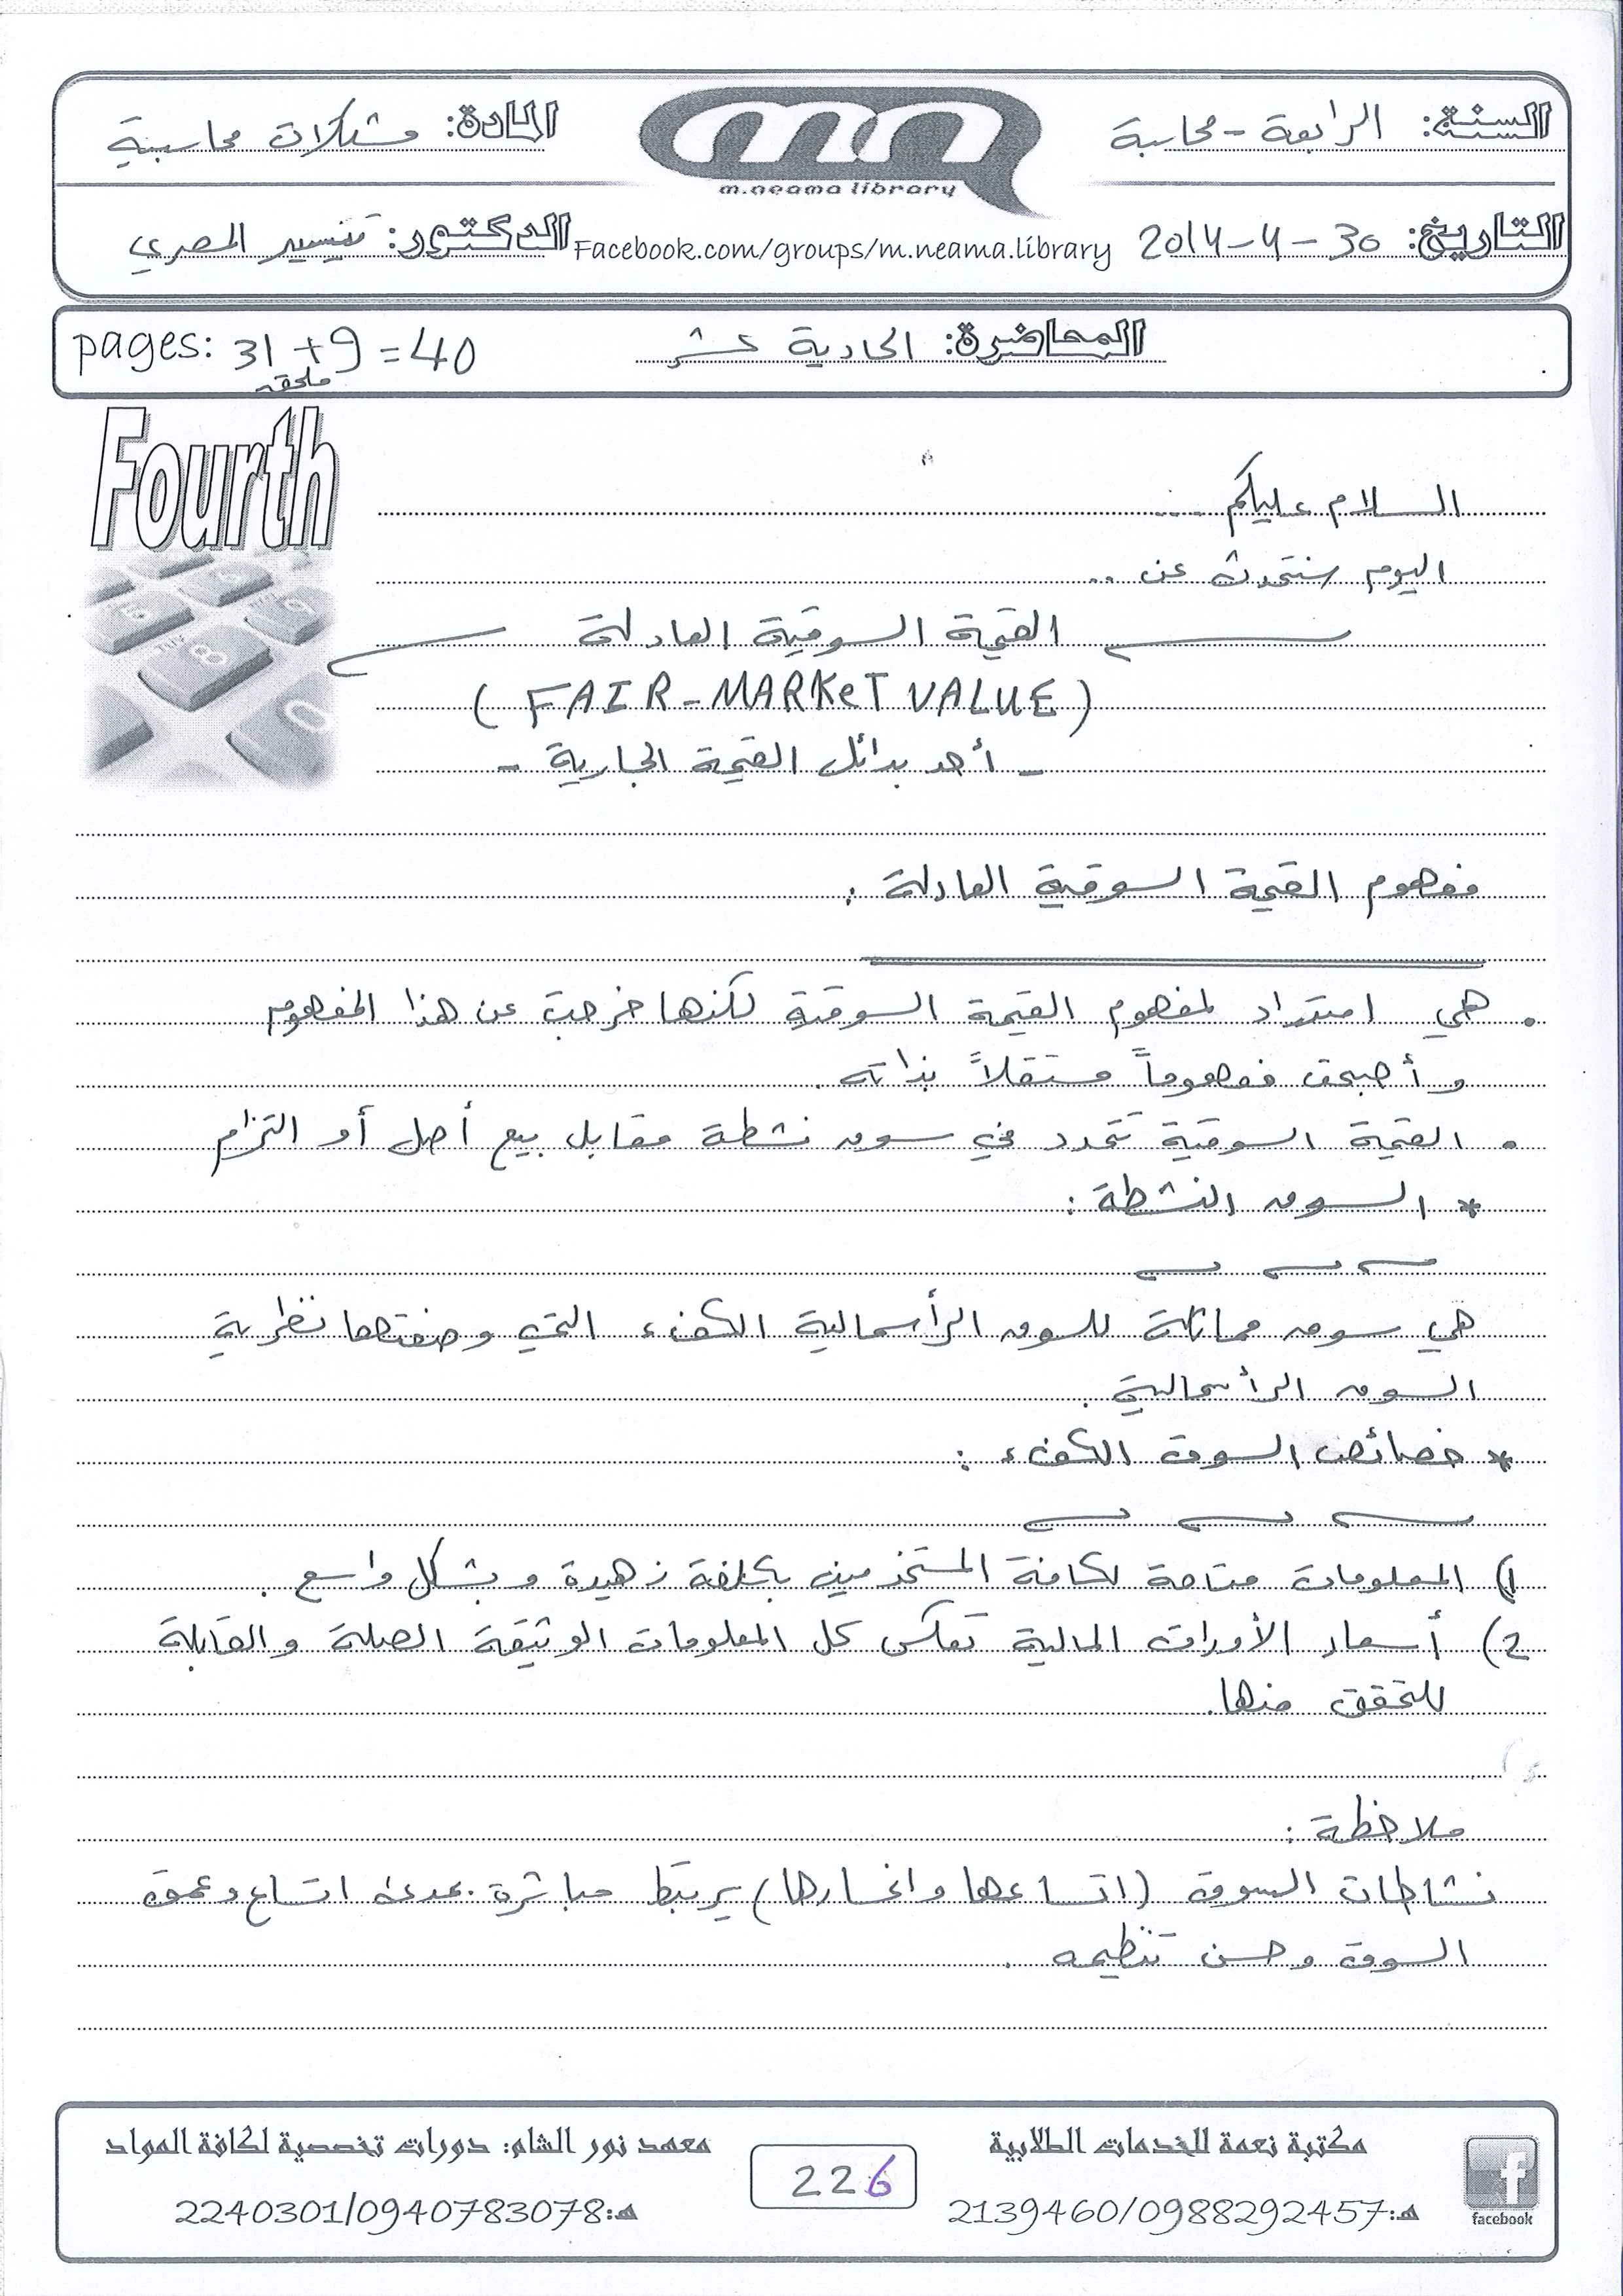 السنة: الرابعة - محاسبة
المادة: مشكلات محاسبية
m.neama library
التاريخ: 30 - 4 - 2014
Facebook.com/groups/m.neama.library
الدكتور: تيسير المصري
المحاضرة: الحادية عشر
pages: 31 + 9 = 40
ملحق
Fourth
السلام عليكم ...
اليوم سنتحدث عن ..
القيمة السوقية العادلة
(FAIR - MARKeT VALUE)
- أحد بدائل القيمة الجارية -
مفهوم القيمة السوقية العادلة :
• هي امتداد لمفهوم القيمة السوقية لكنها خرجت عن هذا المفهوم
وأصبحت مفهوماً مستقلاً بذاته .
• القيمة السوقية تتحدد في سوق نشطة مقابل بيع أصل أو التزام
* السوق النشطة :
هي سوق مماثلة للسوق الرأسمالية الكفء التي وصفتها نظرية
السوق الرأسمالية .
* خصائص السوق الكفء :
1) المعلومات متاحة لكافة المستخدمين بتكلفة زهيدة وبشكل واسع .
2) أسعار الأوراق المالية تعكس كل المعلومات الوثيقة الصلة والقابلة
للتحقق منها.
ملاحظة :
نشاطات السوق (اتساعها وانحسارها) يرتبط مباشرة بمدى اتساع وعمق
السوق وحسن تنظيمه .
مكتبة نعمة للخدمات الطلابية
هـ:2139460/0988292457
facebook
226
معهد نور الشام: دورات تخصصية لكافة المواد
هـ:2240301/0940783078